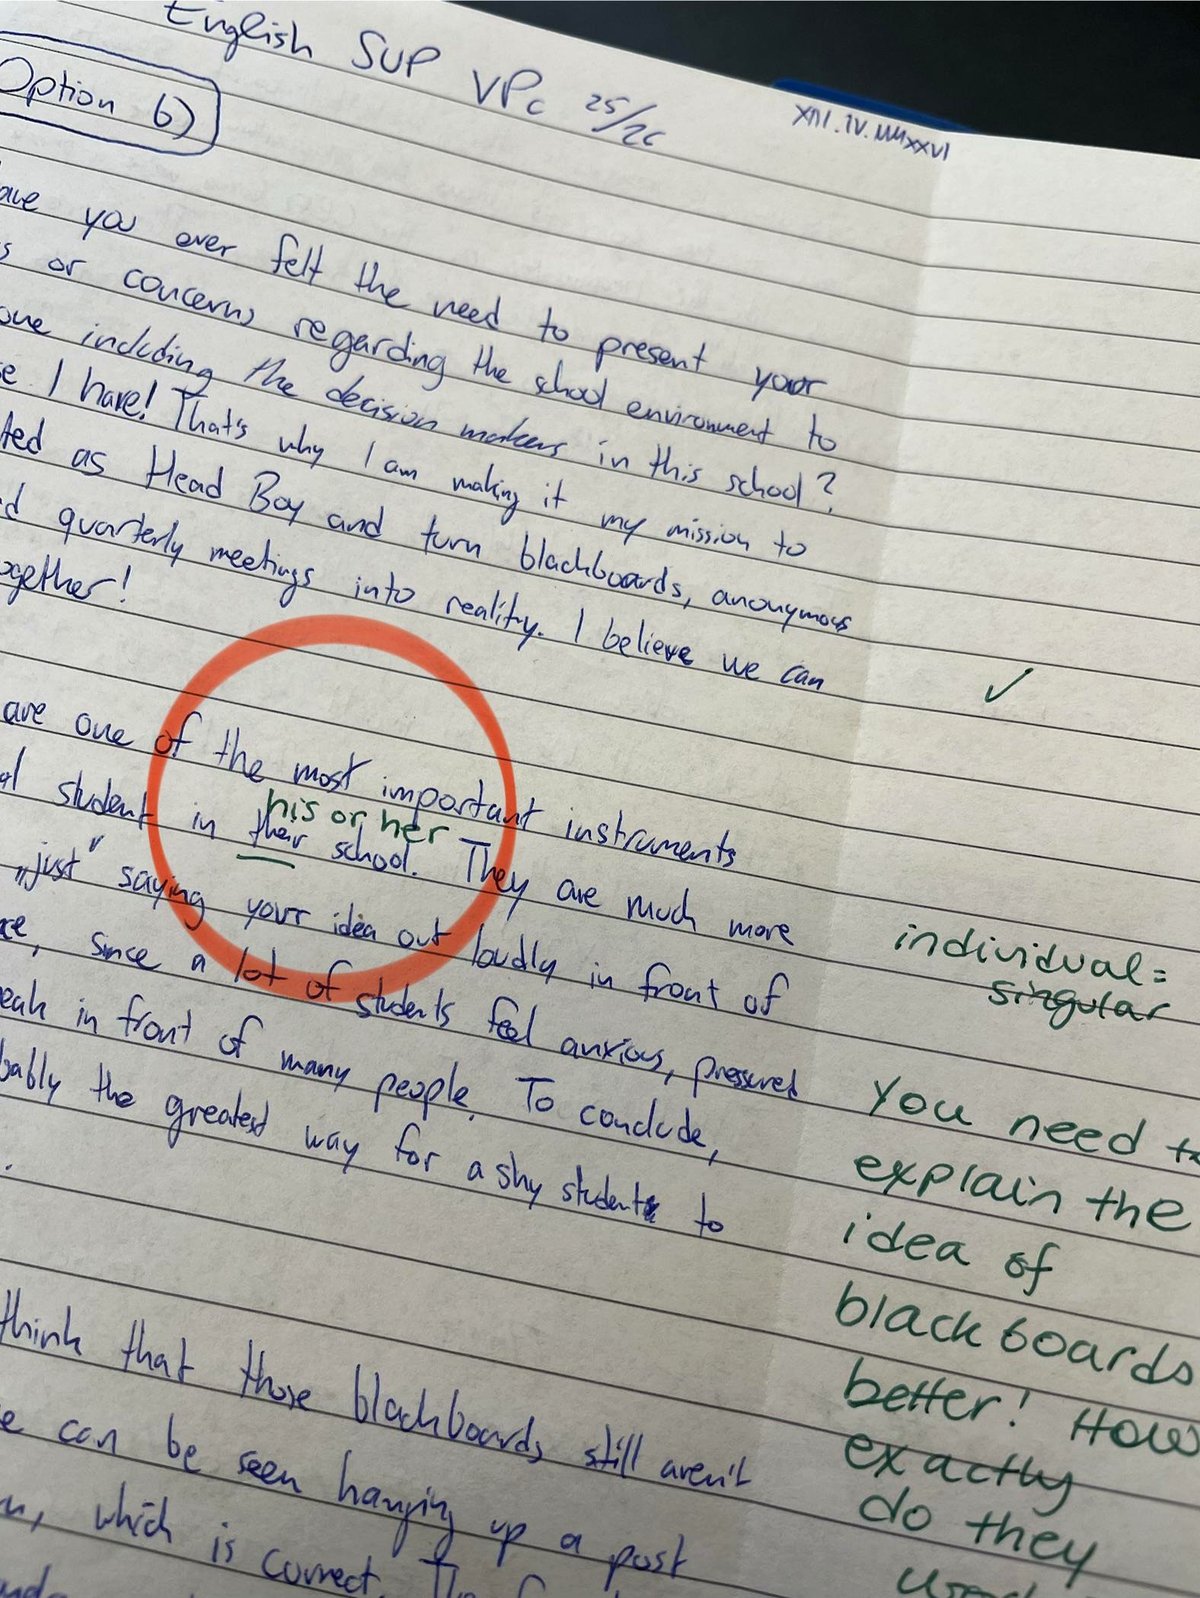 English SUP VPc 25/26
XIII.IV.MMXXVI
Option b)
ave you ever felt the need to present your
s or concerns regarding the school environment to
one including the decision makers in this school?
se I have! That's why I am making it my mission to
ted as Head Boy and turn blackboards, anonymous
d quarterly meetings into reality. I believe we can
ogether!
✓
are one of the most important instruments
al student in their school. They are much more
his or her
individual =
singular
„just" saying your idea out loudly in front of
ce, since a lot of students feel anxious, pressured
eak in front of many people. To conclude,
bably the greatest way for a shy student to
.
You need to
explain the
idea of
blackboards
better! How
exactly
do they
think that those blackboards still aren't
e can be seen hanging up a post
n, which is correct.